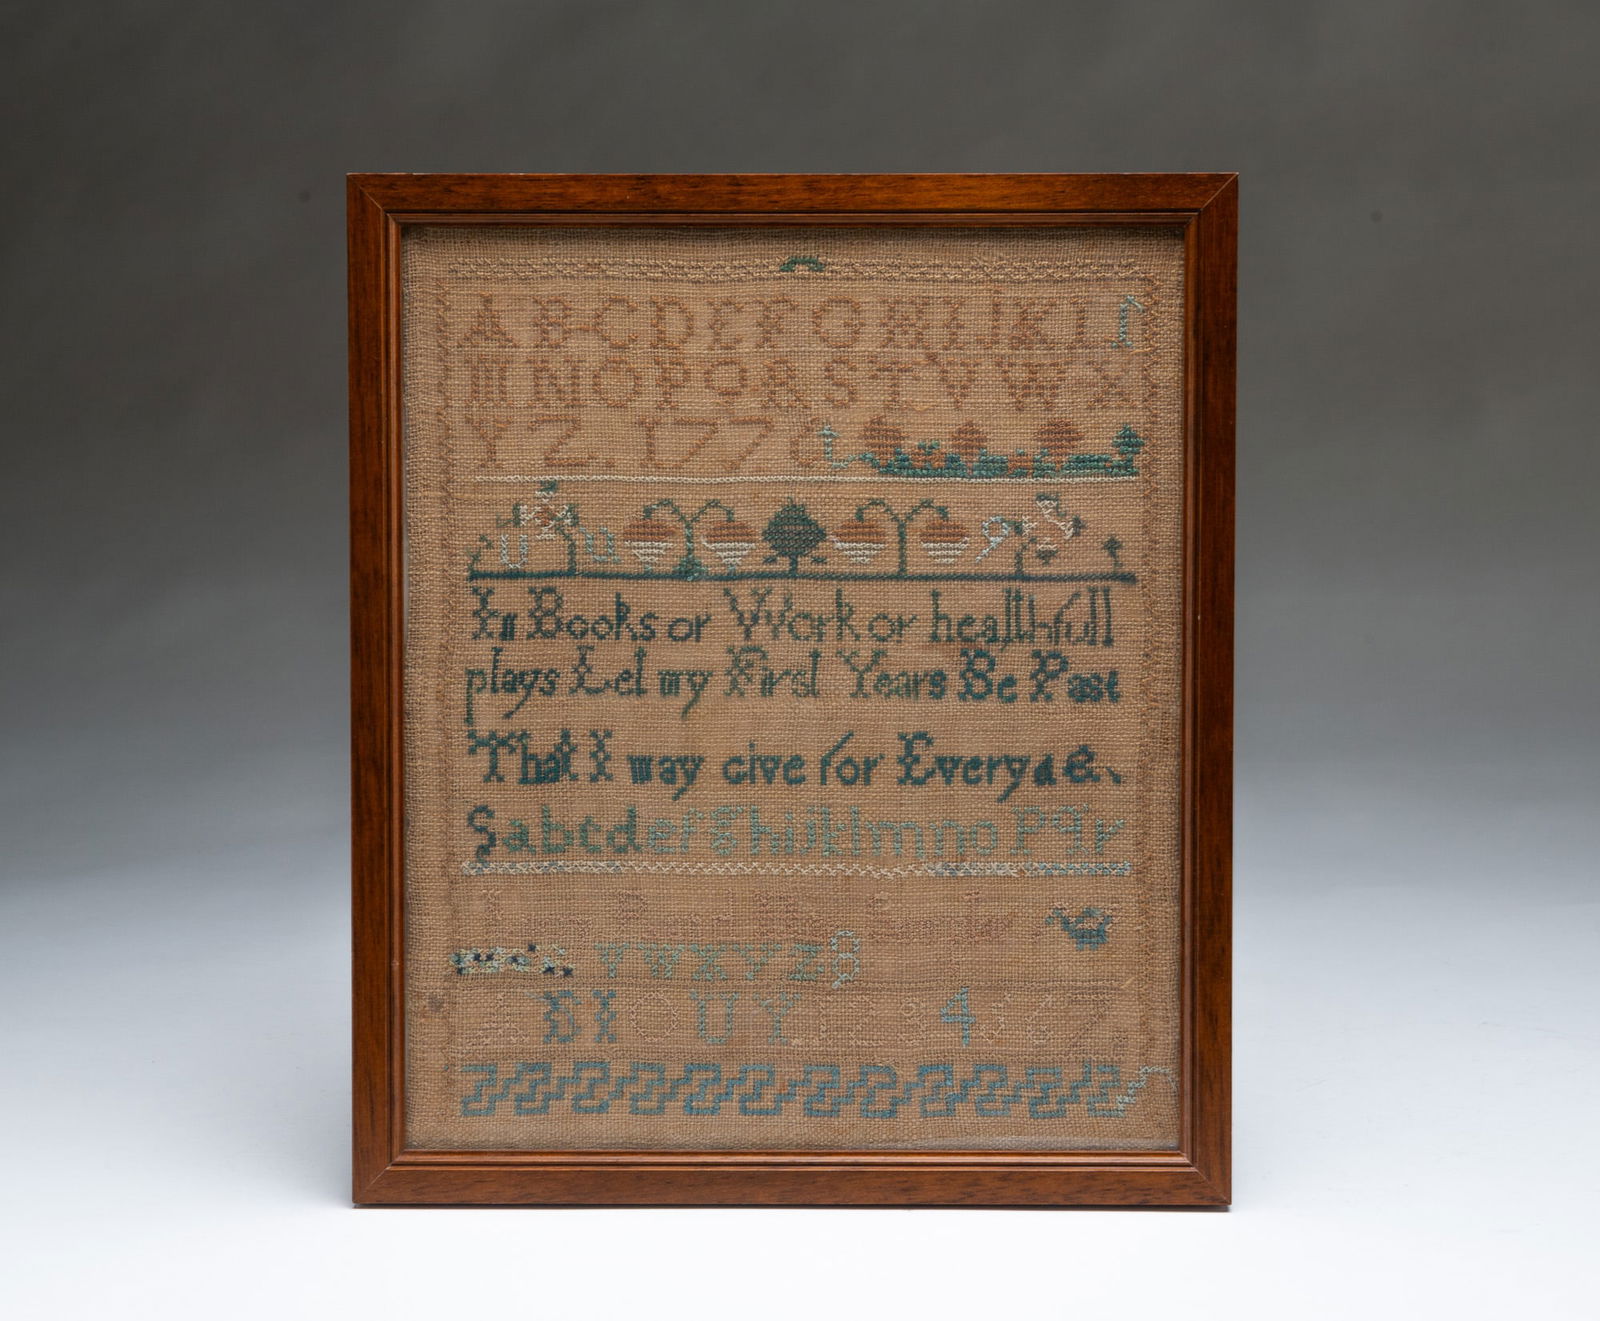 A B C D E F G H I J K L
M N O P Q R S T V W X
Y Z . 1776
In Books or Work or healthfull
plays Let my First Years Be Past
That I may give for Every da
S a b c d e f g h i j k l m n o p q r
V W X Y Z 8
A E I O U Y 1 2 3 4 5 6 7